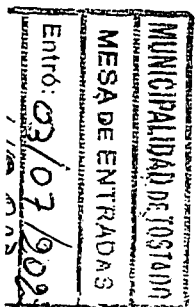 MUNICIPALIDAD DE TOSTADO
MESA DE ENTRADAS
Entró: 03/07/202